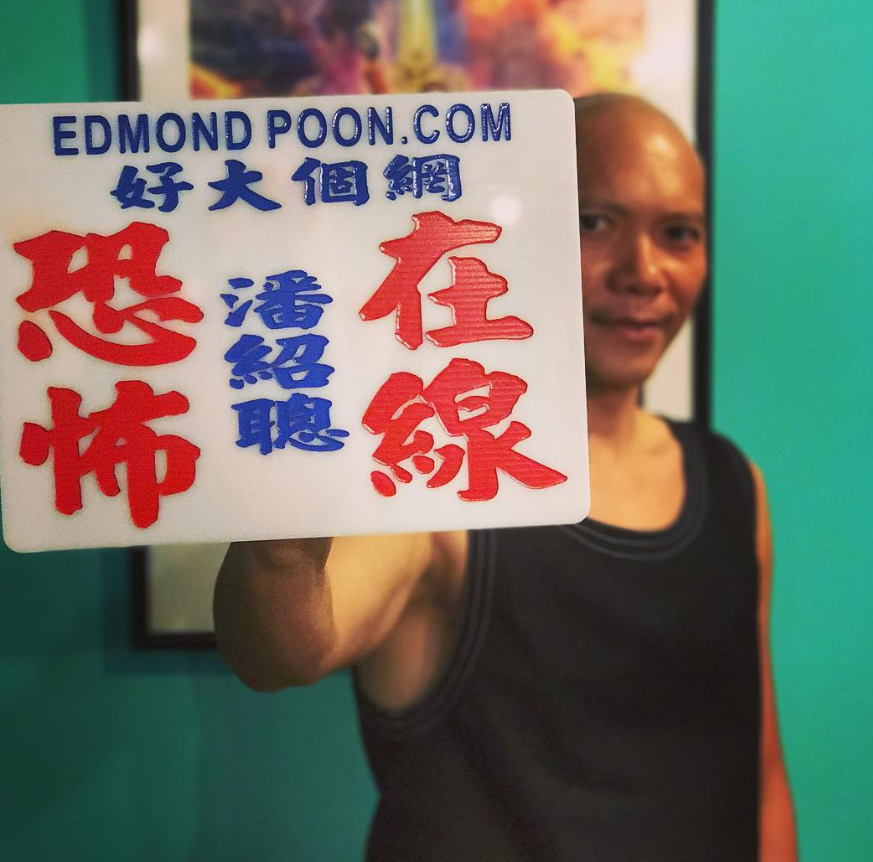 EDMOND POON.COM
好大個網
恐怖
潘紹聰
在線